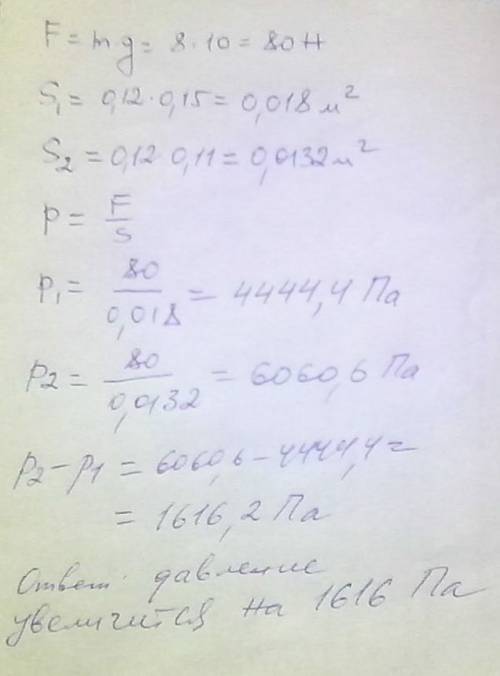 F = mg = 8·10 = 80 Н
S₁ = 0,12·0,15 = 0,018 м²
S₂ = 0,12·0,11 = 0,0132 м²
p = F/S
p₁ = 80/0,018 = 4444,4 Па
p₂ = 80/0,0132 = 6060,6 Па
p₂ - p₁ = 6060,6 - 4444,4 =
= 1616,2 Па
Ответ: давление
увеличится на 1616 Па